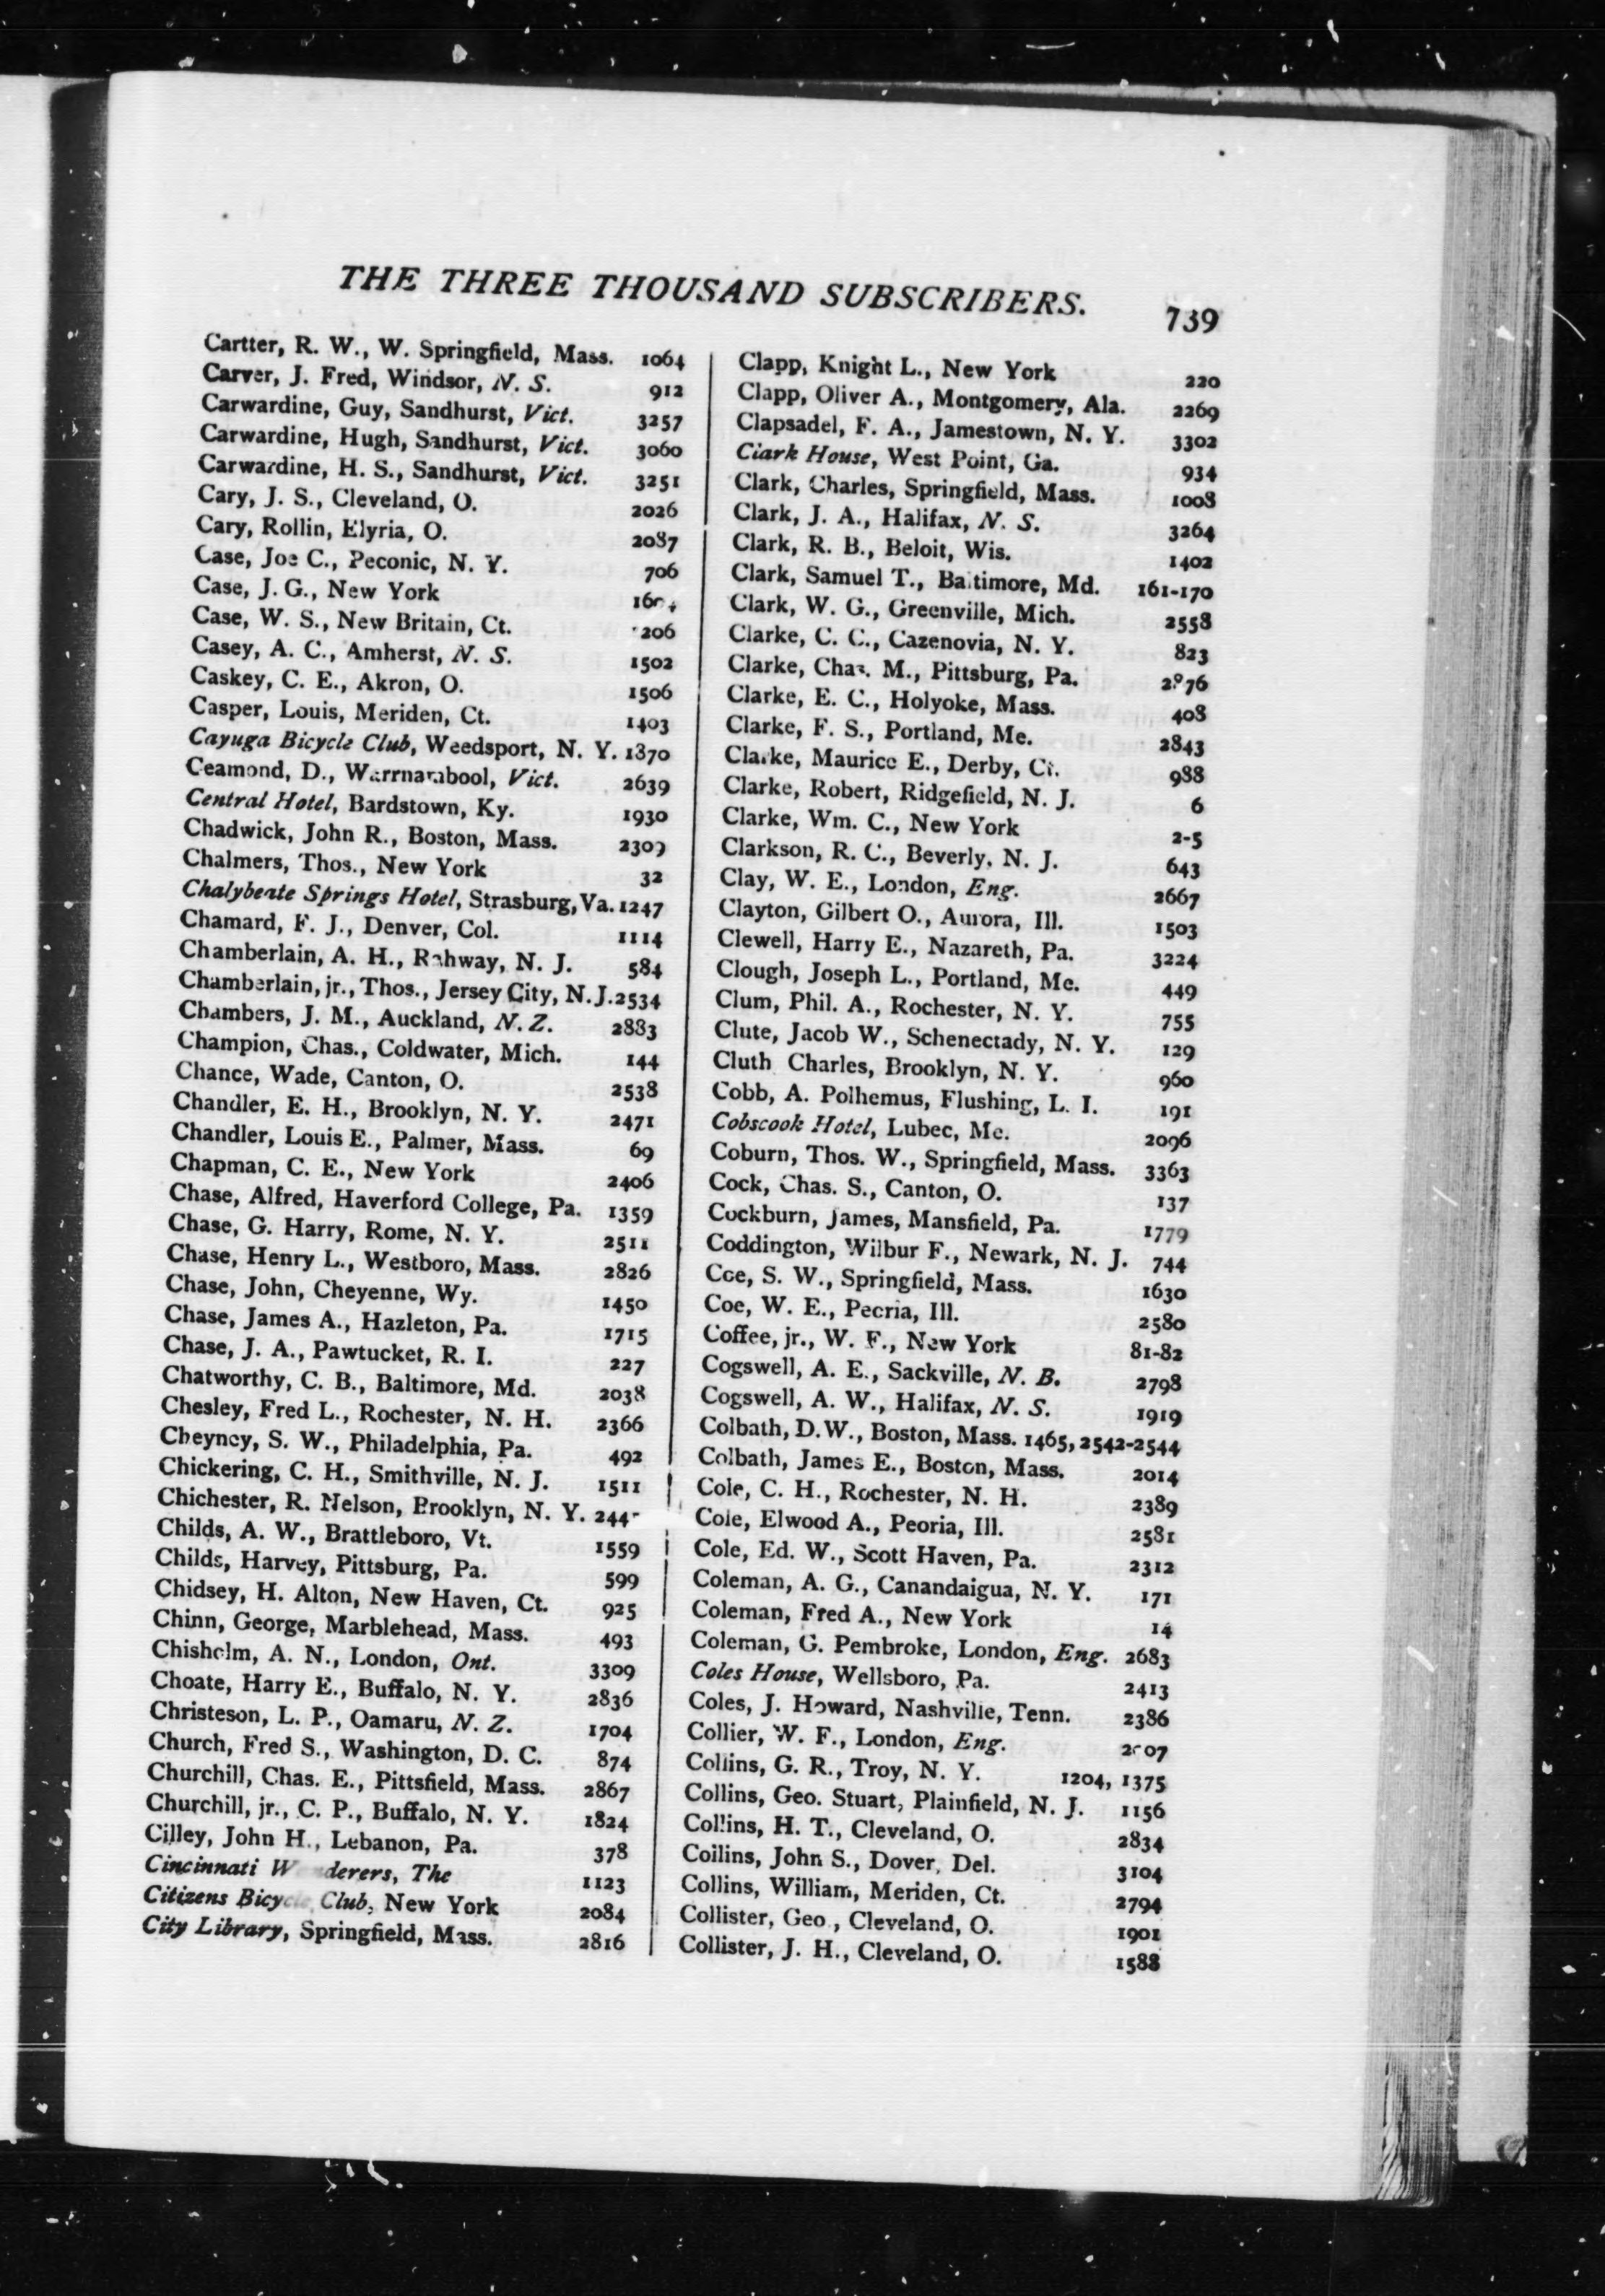 THE THREE THOUSAND SUBSCRIBERS. 739
Cartter, R. W., W. Springfield, Mass. 1064
Carver, J. Fred, Windsor, N. S. 912
Carwardine, Guy, Sandhurst, Vict. 3257
Carwardine, Hugh, Sandhurst, Vict. 3060
Carwardine, H. S., Sandhurst, Vict. 3251
Cary, J. S., Cleveland, O. 2026
Cary, Rollin, Elyria, O. 2087
Case, Joe C., Peconic, N. Y. 706
Case, J. G., New York
Case, W. S., New Britain, Ct.
Casey, A. C., Amherst, N. S. 1502
Caskey, C. E., Akron, O. 1506
Casper, Louis, Meriden, Ct. 1403
Cayuga Bicycle Club, Weedsport, N. Y. 1870
Ceamond, D., Warrnambool, Vict. 2639
Central Hotel, Bardstown, Ky. 1930
Chadwick, John R., Boston, Mass. 2309
Chalmers, Thos., New York 32
Chalybeate Springs Hotel, Strasburg, Va. 1247
Chamard, F. J., Denver, Col. 1114
Chamberlain, A. H., Rahway, N. J. 584
Chamberlain, jr., Thos., Jersey City, N. J. 2534
Chambers, J. M., Auckland, N. Z. 2883
Champion, Chas., Coldwater, Mich. 144
Chance, Wade, Canton, O. 2538
Chandler, E. H., Brooklyn, N. Y. 2471
Chandler, Louis E., Palmer, Mass. 69
Chapman, C. E., New York 2406
Chase, Alfred, Haverford College, Pa. 1359
Chase, G. Harry, Rome, N. Y. 2511
Chase, Henry L., Westboro, Mass. 2826
Chase, John, Cheyenne, Wy. 1450
Chase, James A., Hazleton, Pa. 1715
Chase, J. A., Pawtucket, R. I. 227
Chatworthy, C. B., Baltimore, Md. 2038
Chesley, Fred L., Rochester, N. H. 2366
Cheyney, S. W., Philadelphia, Pa. 492
Chickering, C. H., Smithville, N. J. 1511
Chichester, R. Nelson, Brooklyn, N. Y.
Childs, A. W., Brattleboro, Vt. 1559
Childs, Harvey, Pittsburg, Pa. 599
Chidsey, H. Alton, New Haven, Ct. 925
Chinn, George, Marblehead, Mass. 493
Chisholm, A. N., London, Ont. 3309
Choate, Harry E., Buffalo, N. Y. 2836
Christeson, L. P., Oamaru, N. Z. 1704
Church, Fred S., Washington, D. C. 874
Churchill, Chas. E., Pittsfield, Mass. 2867
Churchill, jr., C. P., Buffalo, N. Y. 1824
Cilley, John H., Lebanon, Pa. 378
Cincinnati Wanderers, The 1123
Citizens Bicycle Club, New York 2084
City Library, Springfield, Mass. 2816
Clapp, Knight L., New York 220
Clapp, Oliver A., Montgomery, Ala. 2269
Clapsadel, F. A., Jamestown, N. Y. 3302
Clark House, West Point, Ga. 934
Clark, Charles, Springfield, Mass. 1008
Clark, J. A., Halifax, N. S. 3264
Clark, R. B., Beloit, Wis. 1402
Clark, Samuel T., Baltimore, Md. 161-170
Clark, W. G., Greenville, Mich. 2558
Clarke, C. C., Cazenovia, N. Y. 823
Clarke, Chas. M., Pittsburg, Pa.
Clarke, E. C., Holyoke, Mass. 408
Clarke, F. S., Portland, Me. 2843
Clarke, Maurice E., Derby, Ct. 988
Clarke, Robert, Ridgefield, N. J. 6
Clarke, Wm. C., New York 2-5
Clarkson, R. C., Beverly, N. J. 643
Clay, W. E., London, Eng. 2667
Clayton, Gilbert O., Aurora, Ill. 1503
Clewell, Harry E., Nazareth, Pa. 3224
Clough, Joseph L., Portland, Me. 449
Clum, Phil. A., Rochester, N. Y. 755
Clute, Jacob W., Schenectady, N. Y. 129
Cluth Charles, Brooklyn, N. Y. 960
Cobb, A. Polhemus, Flushing, L. I. 191
Cobscook Hotel, Lubec, Me. 2096
Coburn, Thos. W., Springfield, Mass. 3363
Cock, Chas. S., Canton, O. 137
Cockburn, James, Mansfield, Pa. 1779
Coddington, Wilbur F., Newark, N. J. 744
Coe, S. W., Springfield, Mass. 1630
Coe, W. E., Peoria, Ill. 2580
Coffee, jr., W. F., New York 81-82
Cogswell, A. E., Sackville, N. B. 2798
Cogswell, A. W., Halifax, N. S. 1919
Colbath, D. W., Boston, Mass. 1465, 2542-2544
Colbath, James E., Boston, Mass. 2014
Cole, C. H., Rochester, N. H. 2389
Cole, Elwood A., Peoria, Ill. 2581
Cole, Ed. W., Scott Haven, Pa. 2312
Coleman, A. G., Canandaigua, N. Y. 171
Coleman, Fred A., New York 14
Coleman, G. Pembroke, London, Eng. 2683
Coles House, Wellsboro, Pa. 2413
Coles, J. Howard, Nashville, Tenn. 2386
Collier, W. F., London, Eng.
Collins, G. R., Troy, N. Y. 1204, 1375
Collins, Geo. Stuart, Plainfield, N. J. 1156
Collins, H. T., Cleveland, O. 2834
Collins, John S., Dover, Del. 3104
Collins, William, Meriden, Ct. 2794
Collister, Geo., Cleveland, O. 1901
Collister, J. H., Cleveland, O. 1588